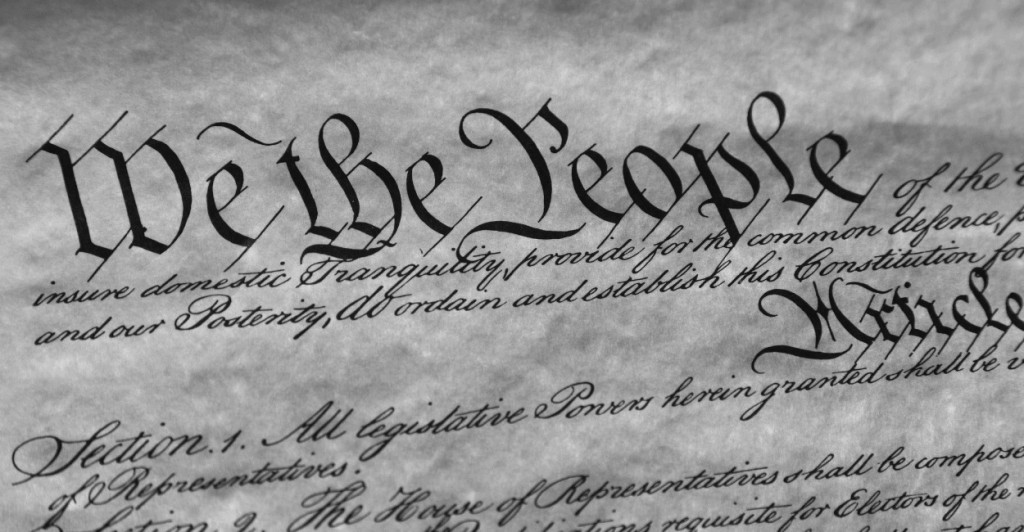 We the People of the
insure domestic Tranquility, provide for the common defence,
and our Posterity, do ordain and establish this Constitution for
Article
Section. 1. All legislative Powers herein granted shall be
of Representatives.
Section. 2. The House of Representatives shall be compose
requisite for Electors of the